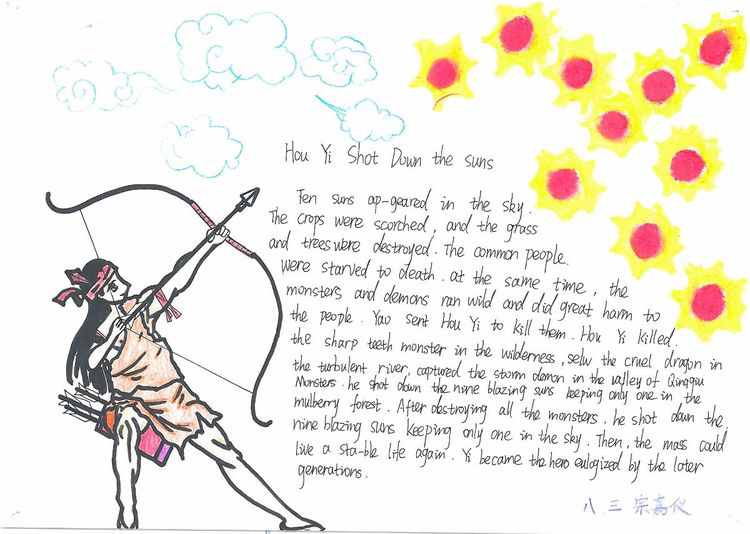 Hou Yi Shot Down the suns
Ten suns ap-geared in the sky.
The crops were scorched, and the grass
and trees were destroyed. The common people.
were starved to death. at the same time, the
monsters and demons ran wild and did great harm to
the people. Yao sent Hou Yi to kill them. Hou Yi killed.
the sharp teeth monster in the wilderness, selw the cruel dragon in
the turbulent river, captured the storm demon in the valley of Qingqiu
Monsters. he shot down the nine blazing suns keeping only one in the
mulberry forest. After destroying all the monsters. he shot down the
nine blazing suns keeping only one in the sky. Then, the mass could
live a sta-ble life again. Yi became the hero eulogized by the later
generations.
八.三 宗嘉仪